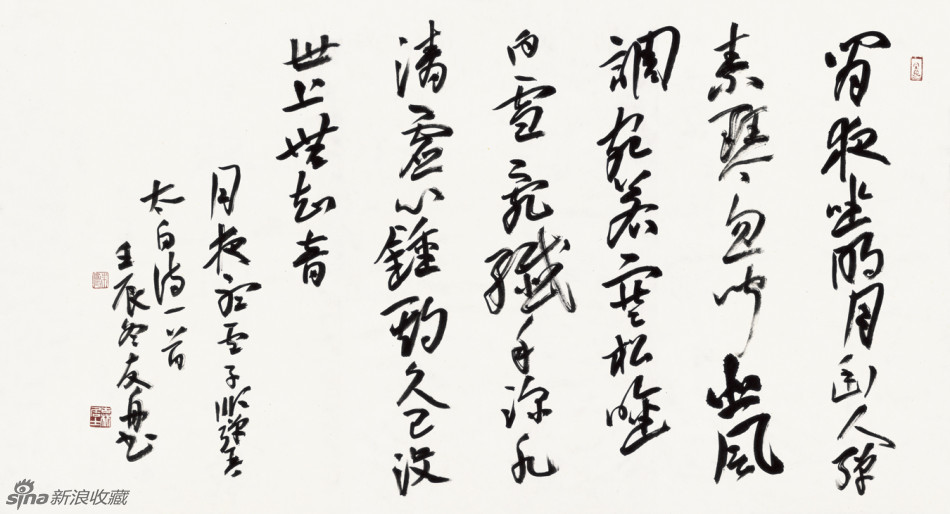 閒夜坐明月幽人弹
素琴忽闻悲風
調宛若寒松吟
白雪乱纖手渌水
清虚心鍾期久已没
世上無知音
月夜听卢子順弹琴
太白诗一首
壬辰冬友舟书
sina新浪收藏